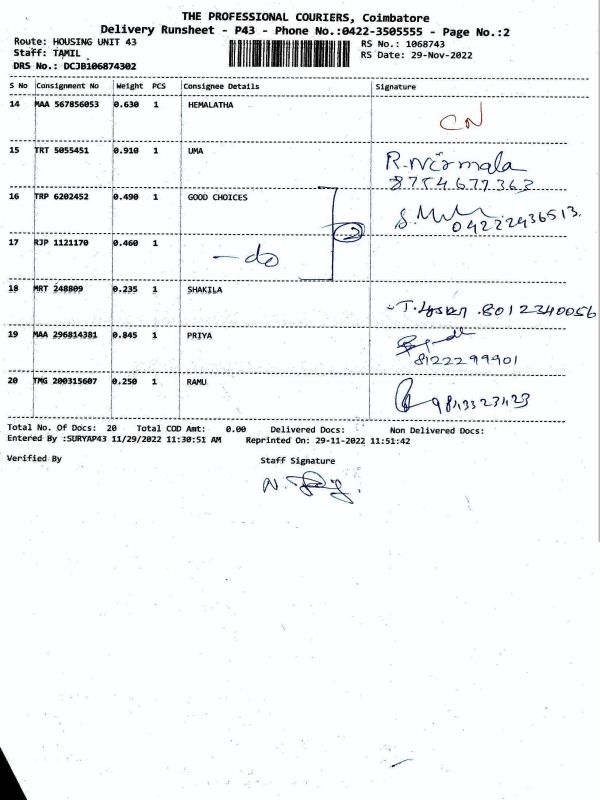 THE PROFESSIONAL COURIERS, Coimbatore
Delivery Runsheet - P43 - Phone No.:0422-3505555 - Page No.:2
Route: HOUSING UNIT 43 RS No.: 1068743
Staff: TAMIL RS Date: 29-Nov-2022
DRS No.: DCJB106874302
S No Consignment No Weight PCS Consignee Details Signature
14 MAA 567856053 0.630 1 HEMALATHA CN
15 TRT 5055451 0.910 1 UMA R.Nirmala
8754677363
16 TRP 6202452 0.490 1 GOOD CHOICES 04222436513.
2
17 RJP 1121170 0.460 1 -do
18 MRT 248809 0.235 1 SHAKILA 8012340056
19 MAA 296814381 0.845 1 PRIYA
8122299901
20 TMG 200315607 0.250 1 RAMU
Total No. Of Docs: 20 Total COD Amt: 0.00 Delivered Docs: Non Delivered Docs:
Entered By :SURYAP43 11/29/2022 11:30:51 AM Reprinted On: 29-11-2022 11:51:42
Verified By Staff Signature